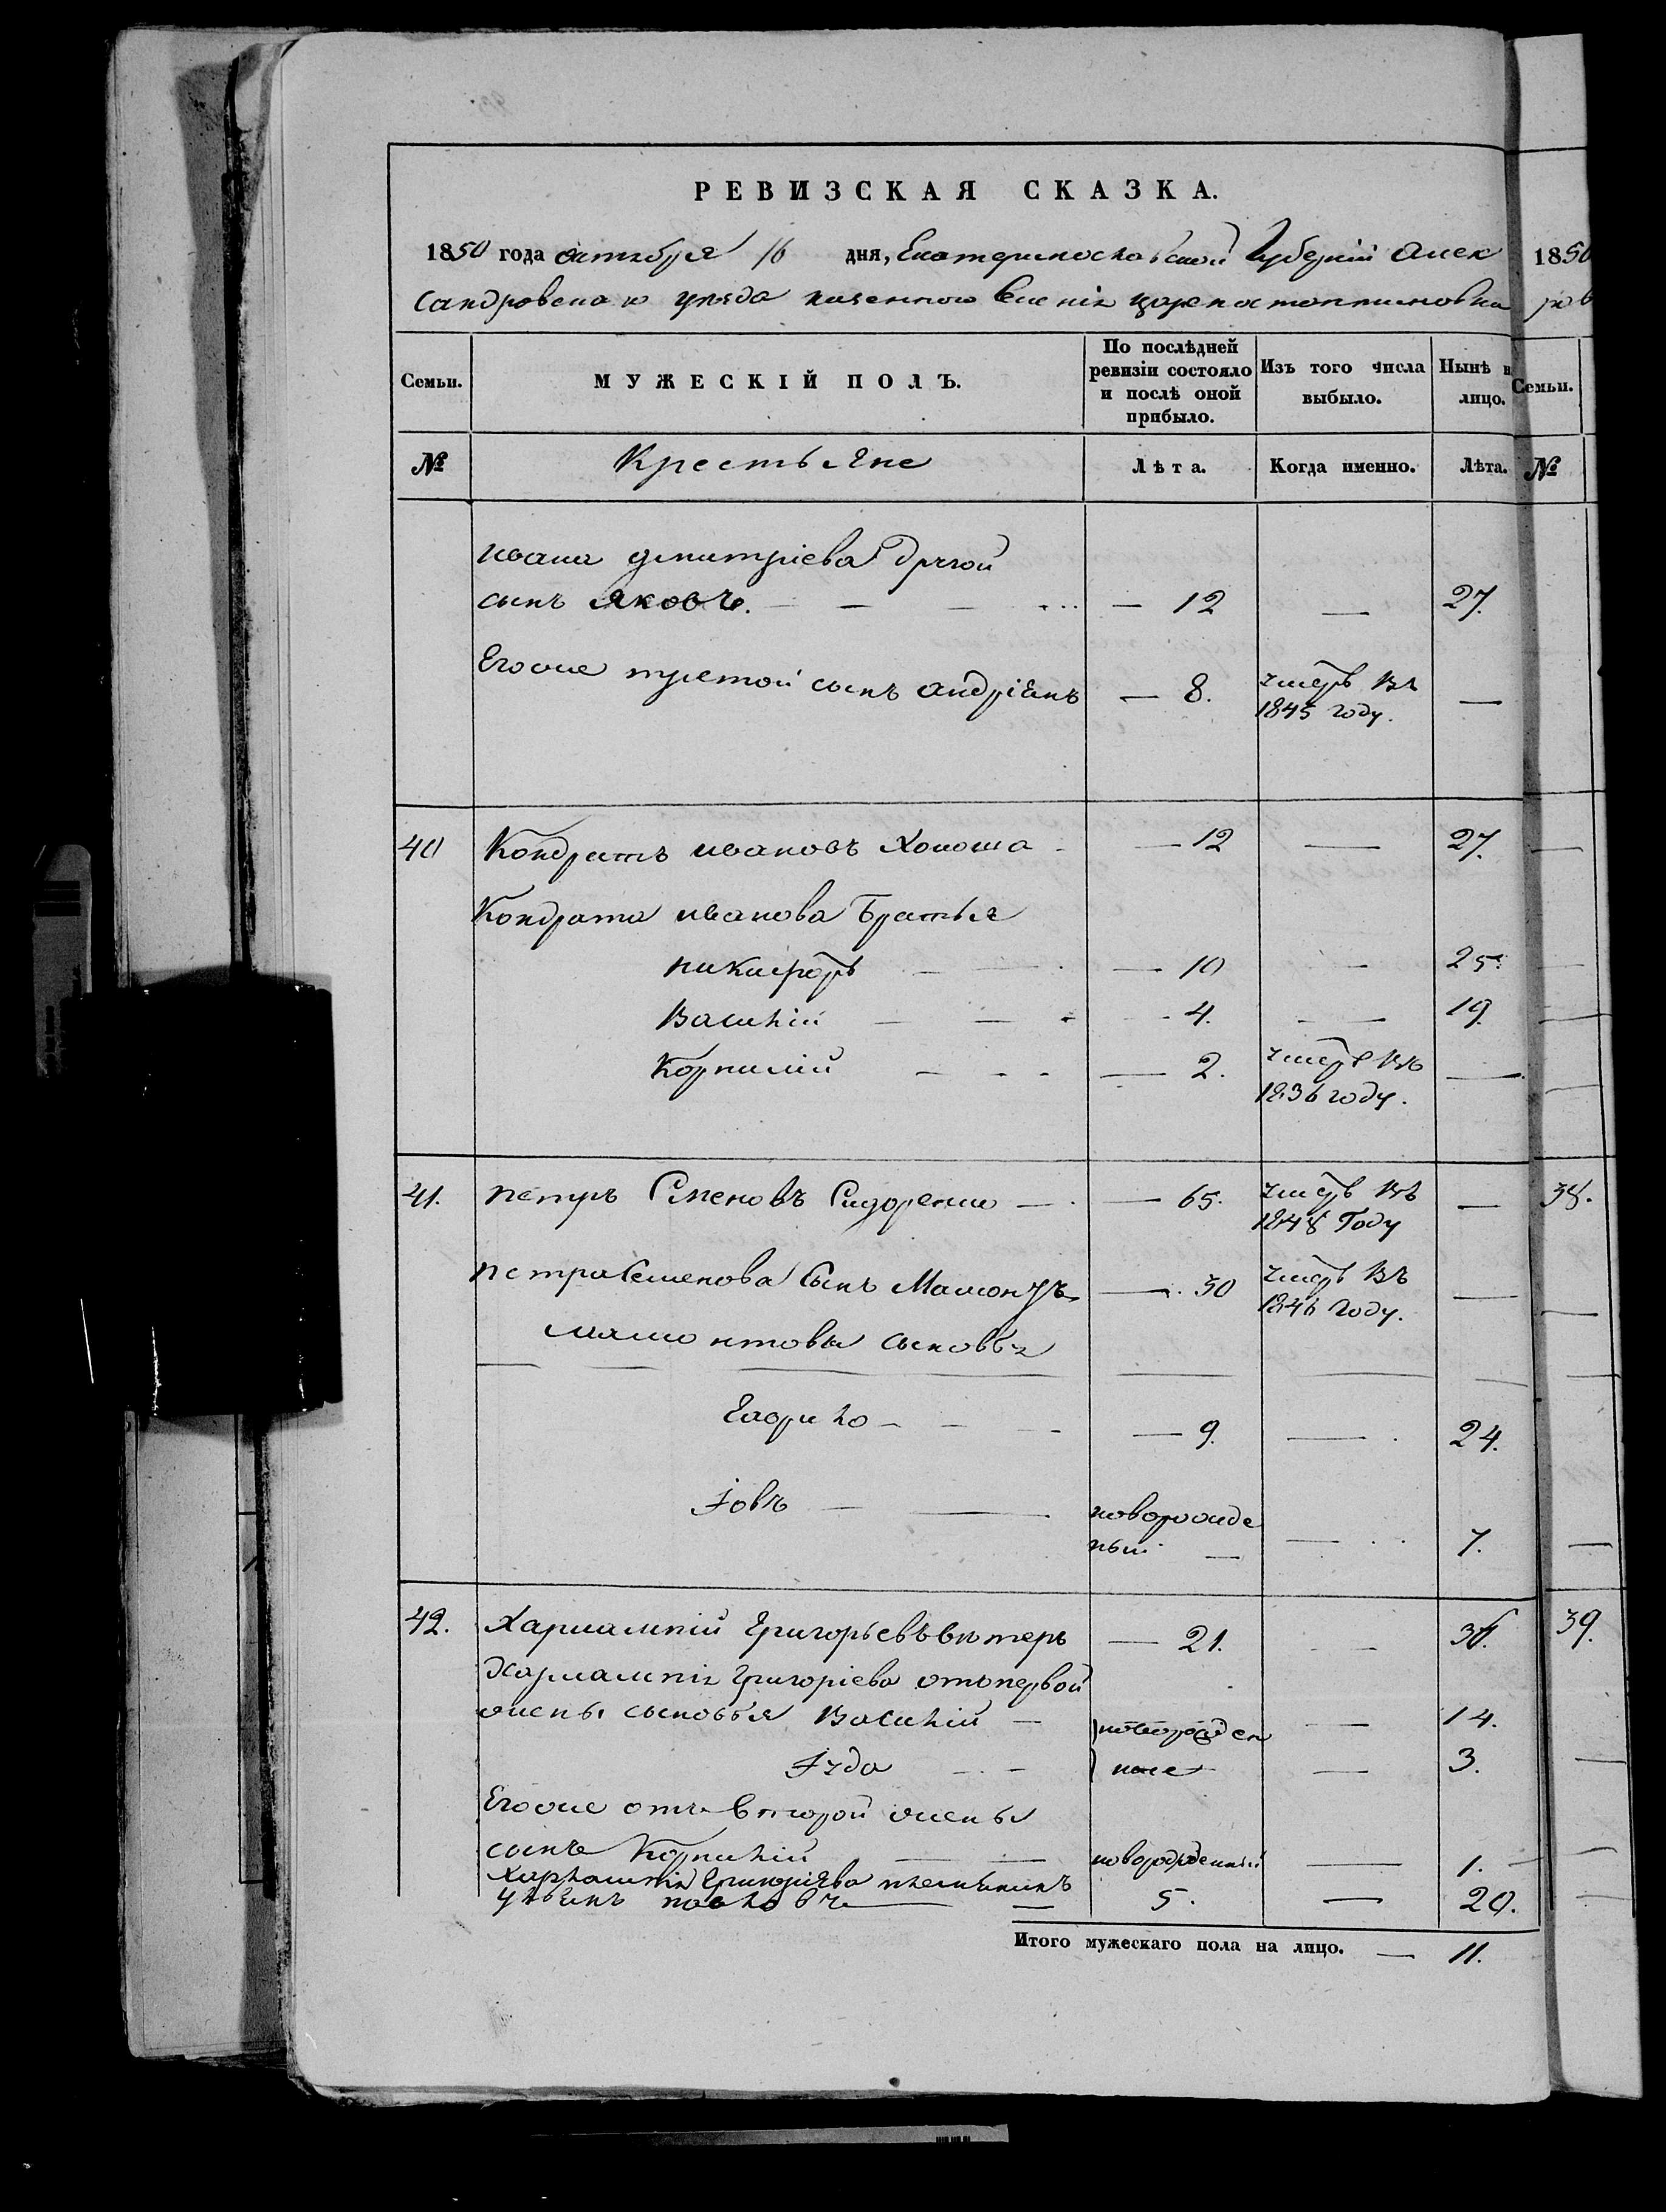 РЕВИЗСКАЯ СКАЗКА.
1850 года октября 16 дня, Екатеринославской Губерніи Алек
сандровскаго уѣзда казенного селенія цареконстантиновка
Семьи. МУЖЕСКІЙ ПОЛЪ. По послѣдней ревизіи состояло и послѣ оной прибыло. Изъ того числа выбыло. Нынѣ н лицо.
№ Крестьяне Лѣта. Когда именно. Лѣта.
ивана дмитріева другой
сынъ яковъ. — 12 — 27.
Егоже третой сынъ андріянъ — 8. умеръ въ —
1845 году.
40 Кондратъ ивановъ Хокоша — 12 — 27.
Кондрата иванова братья
никифоръ — 10 — 25.
Василій — 4. — 19.
Корнилій — 2. умеръ въ —
1836 году.
41. петръ Семеновъ Сидоренко — 65. умеръ въ —
1848 Году
петра Семенова Сынъ Мамонтъ — 30 умеръ въ —
1846 Году.
мамонтовы сыновья
Гаврило — 9. — 24.
Іовъ — новорожде — 7.
ный
42. Харлампій Григорьевъ — 21. — 36.
Харлампія Григоріева отъ первой
жены сыновья Василій — новорожден — 14.
Іуда — ные — 3.
Егоже отъ второй жены
сынъ Корнилій — новорожденный — 1.
Харлампія Григоріева племяникъ
павловъ — 5. — 20.
Итого мужескаго пола на лицо. — 11.
1850
Семьи.
№
38.
39.